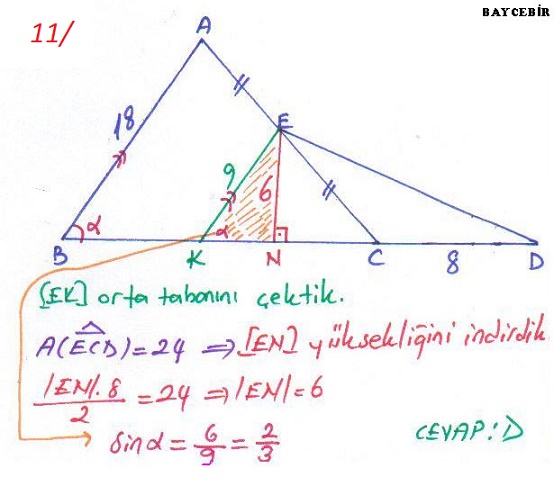 BAYCEBİR
11/
A
18
E
9
6
α
α
B
K
N
C
8
D
[EK] orta tabanını çektik.
A(ECD)=24 ⇒ [EN] yüksekliğini indirdik
|EN|.8/2 = 24 ⇒ |EN|=6
sinα = 6/9 = 2/3
CEVAP: D